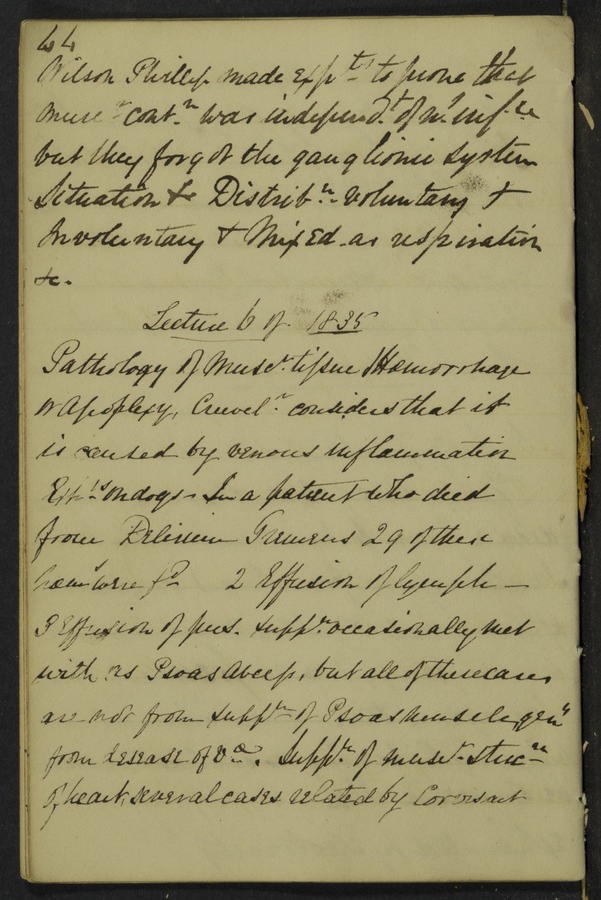 44
Wilson Phillip made expts to prove that
musc r contn. was independt. of ns. infce
but they forgot the ganglionic system
Situation &c Distribn. voluntary &
Involuntary & Mixed as respiration
&c.
Lecture 6 of 1835
Pathology of Muscr. tissue Hæmorrhage
or Apoplexy, Cruvelr. considers that it
is caused by venous inflammation
Expts on dogs - In a patient who died
from Delirium Tremens 29 of these
hæms were fd 2 Effusion of lymph —
3 Effusion of pus. suppn. occasionally met
with as Psoas Abcess, but all of these cases
are not from suppn of Psoas muscle, genly
from disease of væ. Suppn. of muscr. strucre
of heart, several cases related by Corvisart